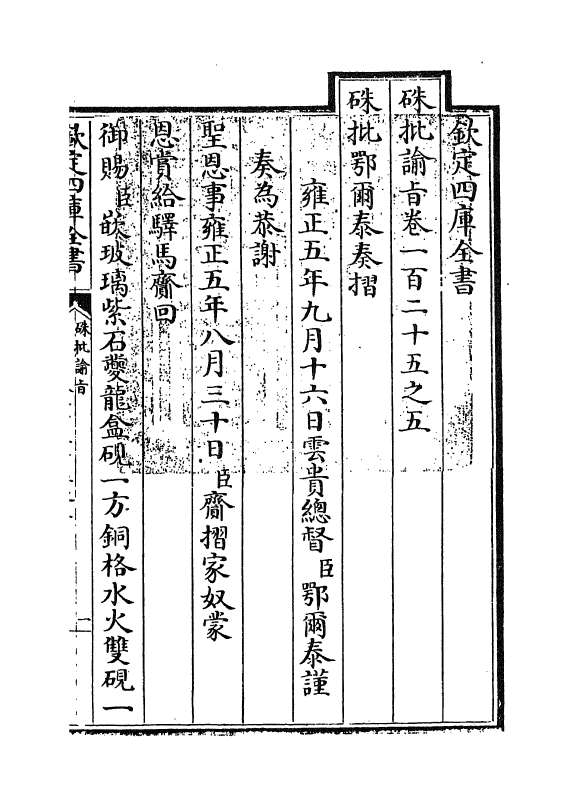 欽定四庫全書
硃批諭旨卷一百二十五之五
硃批鄂爾泰奏摺
雍正五年九月十六日雲貴總督臣鄂爾泰謹
奏為恭謝
聖恩事雍正五年八月三十日臣齎摺家奴蒙
恩賞給驛馬齎回
御賜臣嵌玻璃紫石夔龍盒硯一方銅格水火雙硯一
欽定四庫全書
硃批諭旨
一